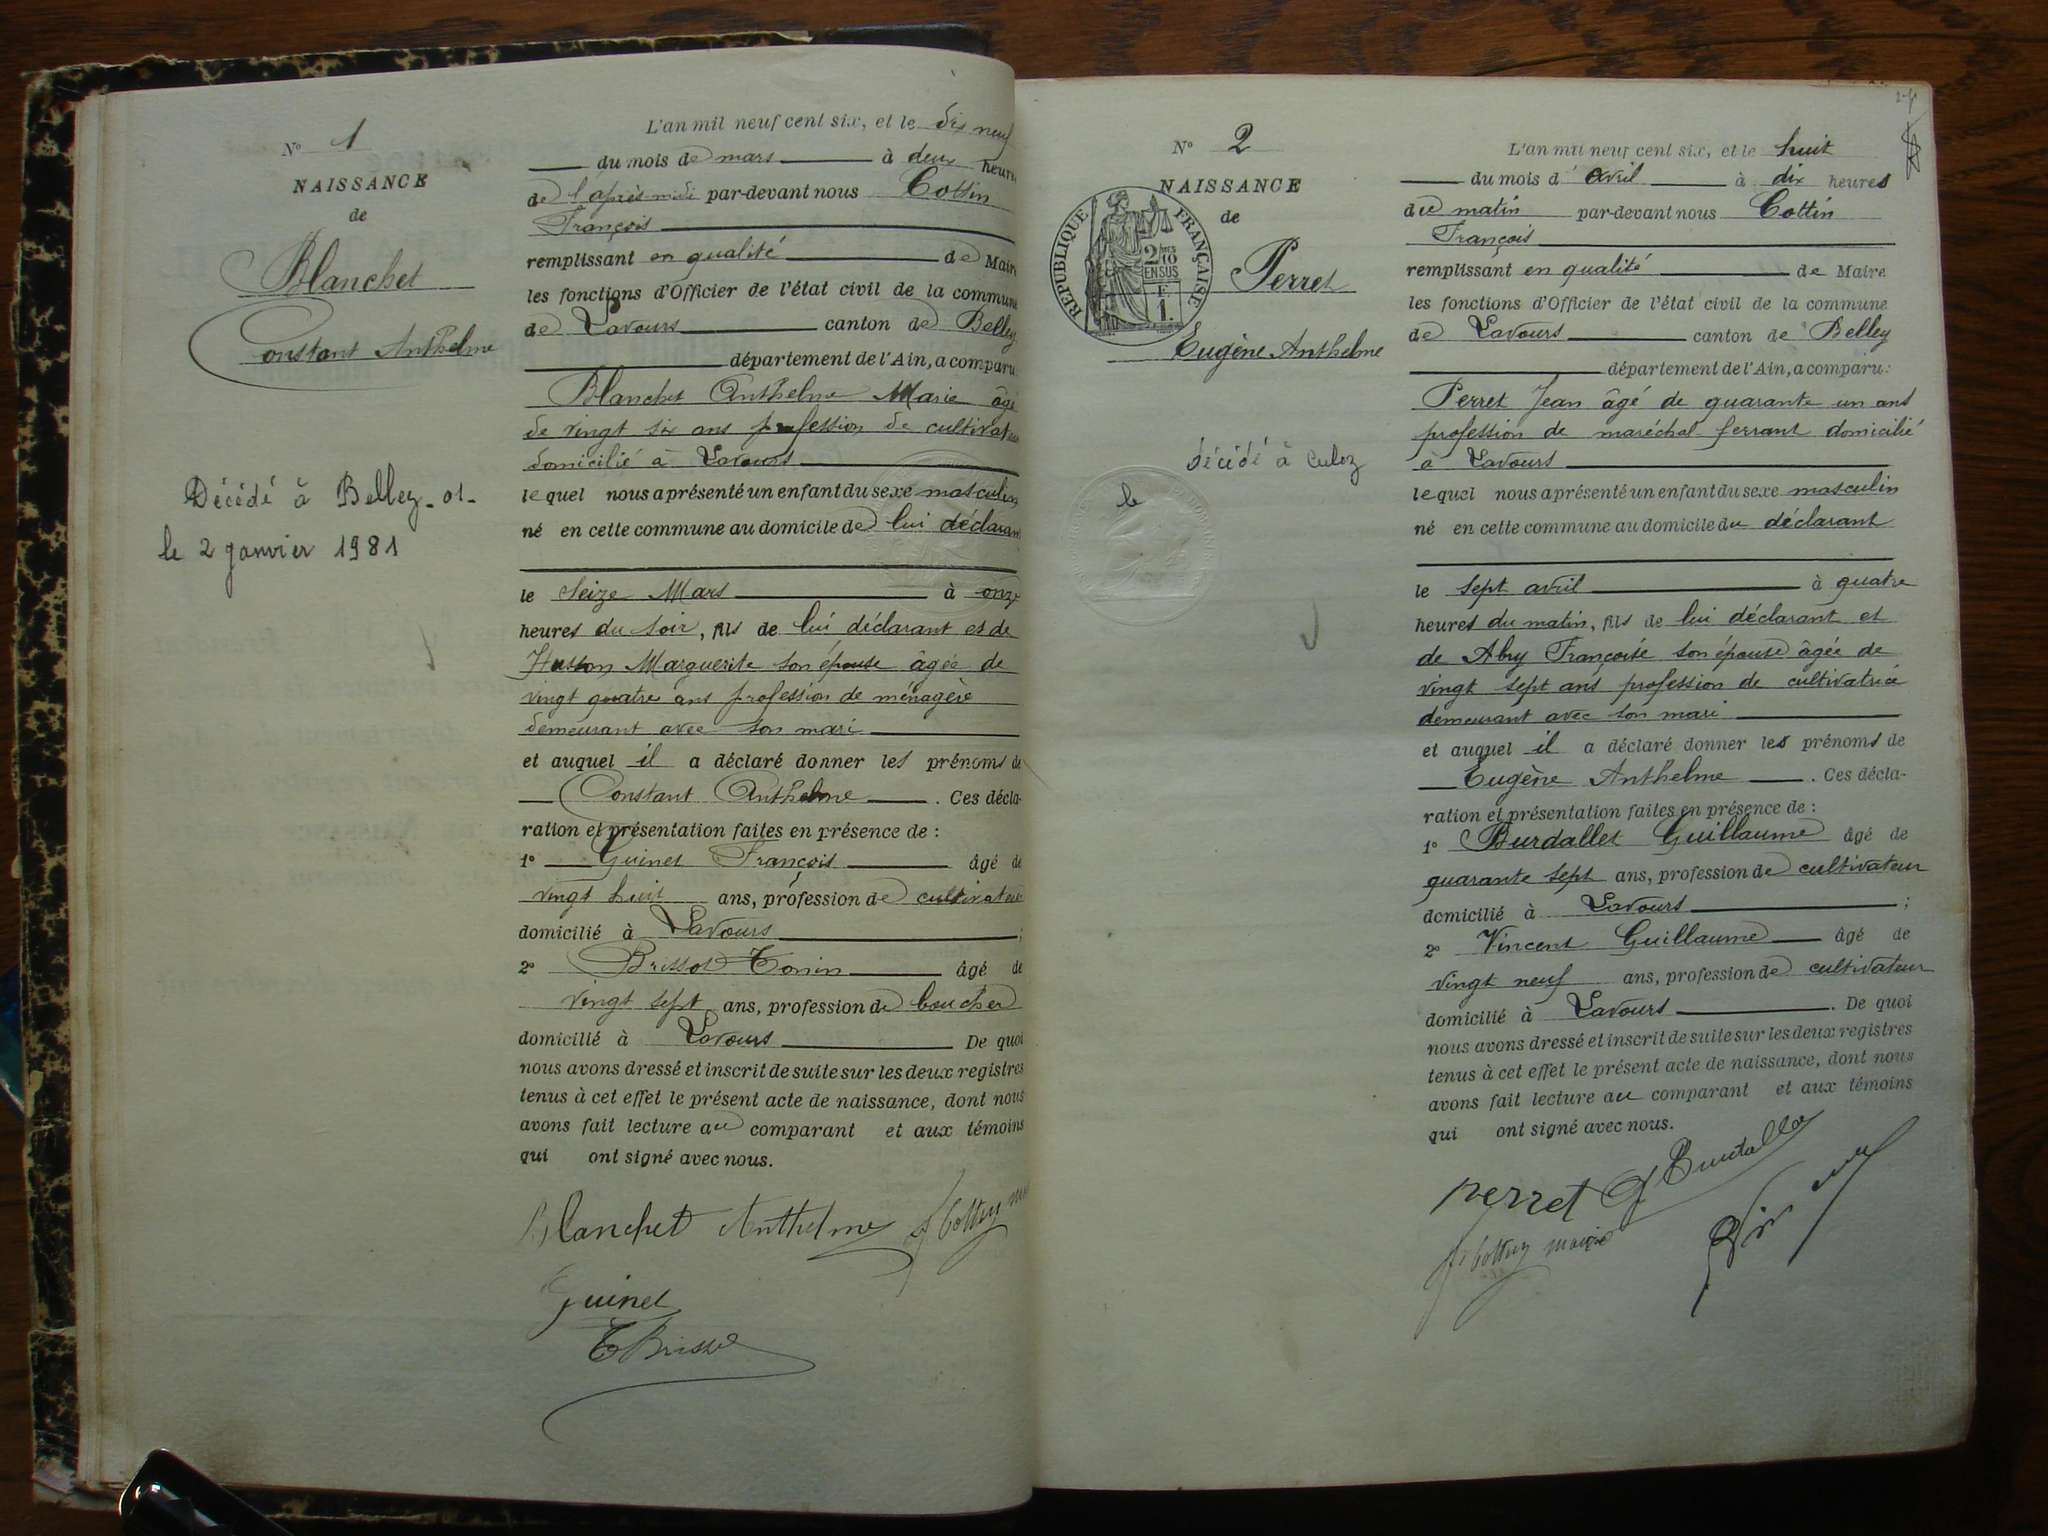 N° 1
NAISSANCE
de
Blanchet
Constant Anthelme
Décédé à Belley - 01 -
le 2 janvier 1981
L'an mil neuf cent six, et le dix neuf
du mois de mars à deux heures
de l'après-midi par-devant nous Cottin
François
remplissant en qualité de Maire
les fonctions d'Officier de l'état civil de la commune
de Lavours canton de Belley
département de l'Ain, a comparu
Blanchet Anthelme Marie âgé
de vingt six ans profession de cultivateur
domicilié à Lavours
le quel nous a présenté un enfant du sexe masculin
né en cette commune au domicile de lui déclarant
le Seize Mars à onze
heures du soir, fils de lui déclarant et de
Marguerite son épouse âgée de
vingt quatre ans profession de ménagère
demeurant avec son mari
et auquel il a déclaré donner les prénoms de
Constant Anthelme . Ces décla-
ration et présentation faites en présence de :
1° Guinet François âgé de
vingt huit ans, profession de cultivateur
domicilié à Lavours ;
2° Brissot Tonin âgé de
vingt sept ans, profession de boucher
domicilié à Lavours De quoi
nous avons dressé et inscrit de suite sur les deux registres
tenus à cet effet le présent acte de naissance, dont nous
avons fait lecture au comparant et aux témoins
qui ont signé avec nous.
Blanchet Anthelme
Guinet
N° 2
NAISSANCE
de
RÉPUBLIQUE FRANÇAISE
2/10
EN SUS
1.
Perret
Eugène Anthelme
décédé à Culoz
le
L'an mil neuf cent six, et le huit
du mois d'avril à dix heures
du matin par-devant nous Cottin
François
remplissant en qualité de Maire
les fonctions d'Officier de l'état civil de la commune
de Lavours canton de Belley
département de l'Ain, a comparu :
Perret Jean âgé de quarante un ans
profession de maréchal ferrant domicilié
à Lavours
le quel nous a présenté un enfant du sexe masculin
né en cette commune au domicile du déclarant
le sept avril à quatre
heures du matin, fils de lui déclarant et
de Abry Françoise son épouse âgée de
vingt sept ans profession de cultivatrice
demeurant avec son mari
et auquel il a déclaré donner les prénoms de
Eugène Anthelme . Ces décla-
ration et présentation faites en présence de :
1° Burdallet Guillaume âgé de
quarante sept ans, profession de cultivateur
domicilié à Lavours ;
2° Vincent Guillaume âgé de
vingt neuf ans, profession de cultivateur
domicilié à Lavours . De quoi
nous avons dressé et inscrit de suite sur les deux registres
tenus à cet effet le présent acte de naissance, dont nous
avons fait lecture au comparant et aux témoins
qui ont signé avec nous.
perret
maire